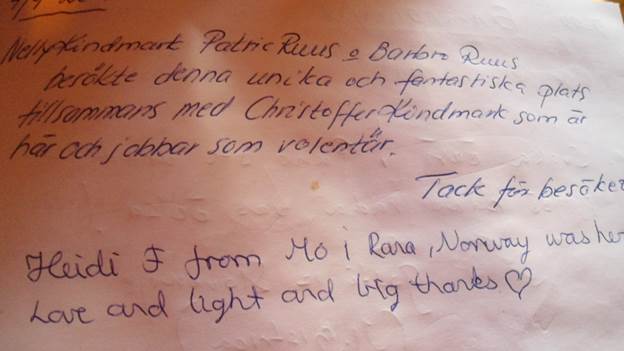 Nelly Kindmark Patric Ruus o Barbro Ruus
besökte denna unika och fantastiska plats
tillsammans med Christoffer Kindmark som är
här och jobbar som volentär.
Tack för besöket
Heidi F from Mo i Rana, Norway was her
Love and light and big thanks ♡